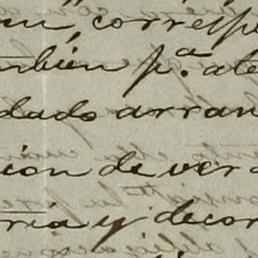 um, corresp
mbien p.ª ate
dado arran
ion de ver
ria y decor